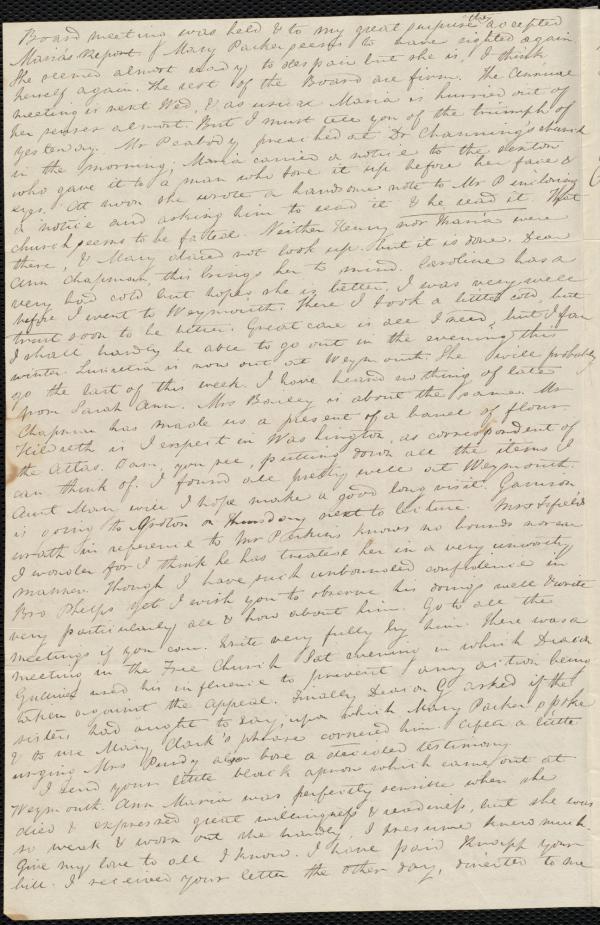 Board meeting was held & to my great surprise they accepted
Maria's Report. Mary Parker seems to have righted again
She seemed almost ready to despair but she is, I think
herself again. The rest of the Board are firm. The annual
meeting is next Wed, & as usual Maria is hurried out of
her senses almost. But I must tell you of the triumph of
yesterday. Mr Peabody preached at Dr Channing's church
in the morning, Maria carried a notice to the sexton
who gave it to a man who tore it up before her face &
eyes. At noon she wrote a handsome note to Mr P enclosing
a notice and asking him to read it & he read it. That
church seems to be fated. Neither Henry nor Maria were
there, & Mary dared not look up. but it is done. Dear
Ann Chapman, this brings her to mind. Caroline has a
very bad cold but hopes she is better. I was very well
before I went to Weymouth. There I took a little cold, but
trust soon to be better. Great care is all I need, but I fear
I shall hardly be able to go out in the evening this
winter. Lucretia is now out at Weymouth. She will probably
go the last of this week. I have heard nothing of late
from Sarah Ann. Mrs Bailey is about the same. Mr
Chapman has made us a present of a barrel of flour.
Hildreth is I expect in Washington, as correspondent of
the Atlas. I am, you see, putting down all the items I
can think of. I found all pretty well at Weymouth.
Aunt Mary will I hope make a good long visit. Garrison
is going to Groton on Thursday next to lecture. Mrs Fifield's
wrath in reference to Mr Parkers knows no bounds nor can
I wonder for I think he has treated her in a very unworthy
manner. Though I have such unbounded confidence in
Bro Phelps yet I wish you to observe his doings well & write
very particularly all & how about him. Go to all the
meetings if you can. Write very fully by him. There was a
meeting in the Free Church Sat evening in which Deacon
Gulliver used his influence to prevent any action being
taken against the appeal. Finally Deacon G asked if the
sisters had aught to say; upon which Mary Parker spoke
& to use Mary Clark's phrase cornered him. After a little
urging Mrs Purdy also bore a decided testimony.
I send your little black apron which came out at
Weymouth. Ann Maria was perfectly sensible when she
died & expressed great willingness & readiness, but she was
so weak & worn out she hardly, I presume knew much.
Give my love to all I know. I have paid Knapp your
bill. I received your letter the other day, directed to me